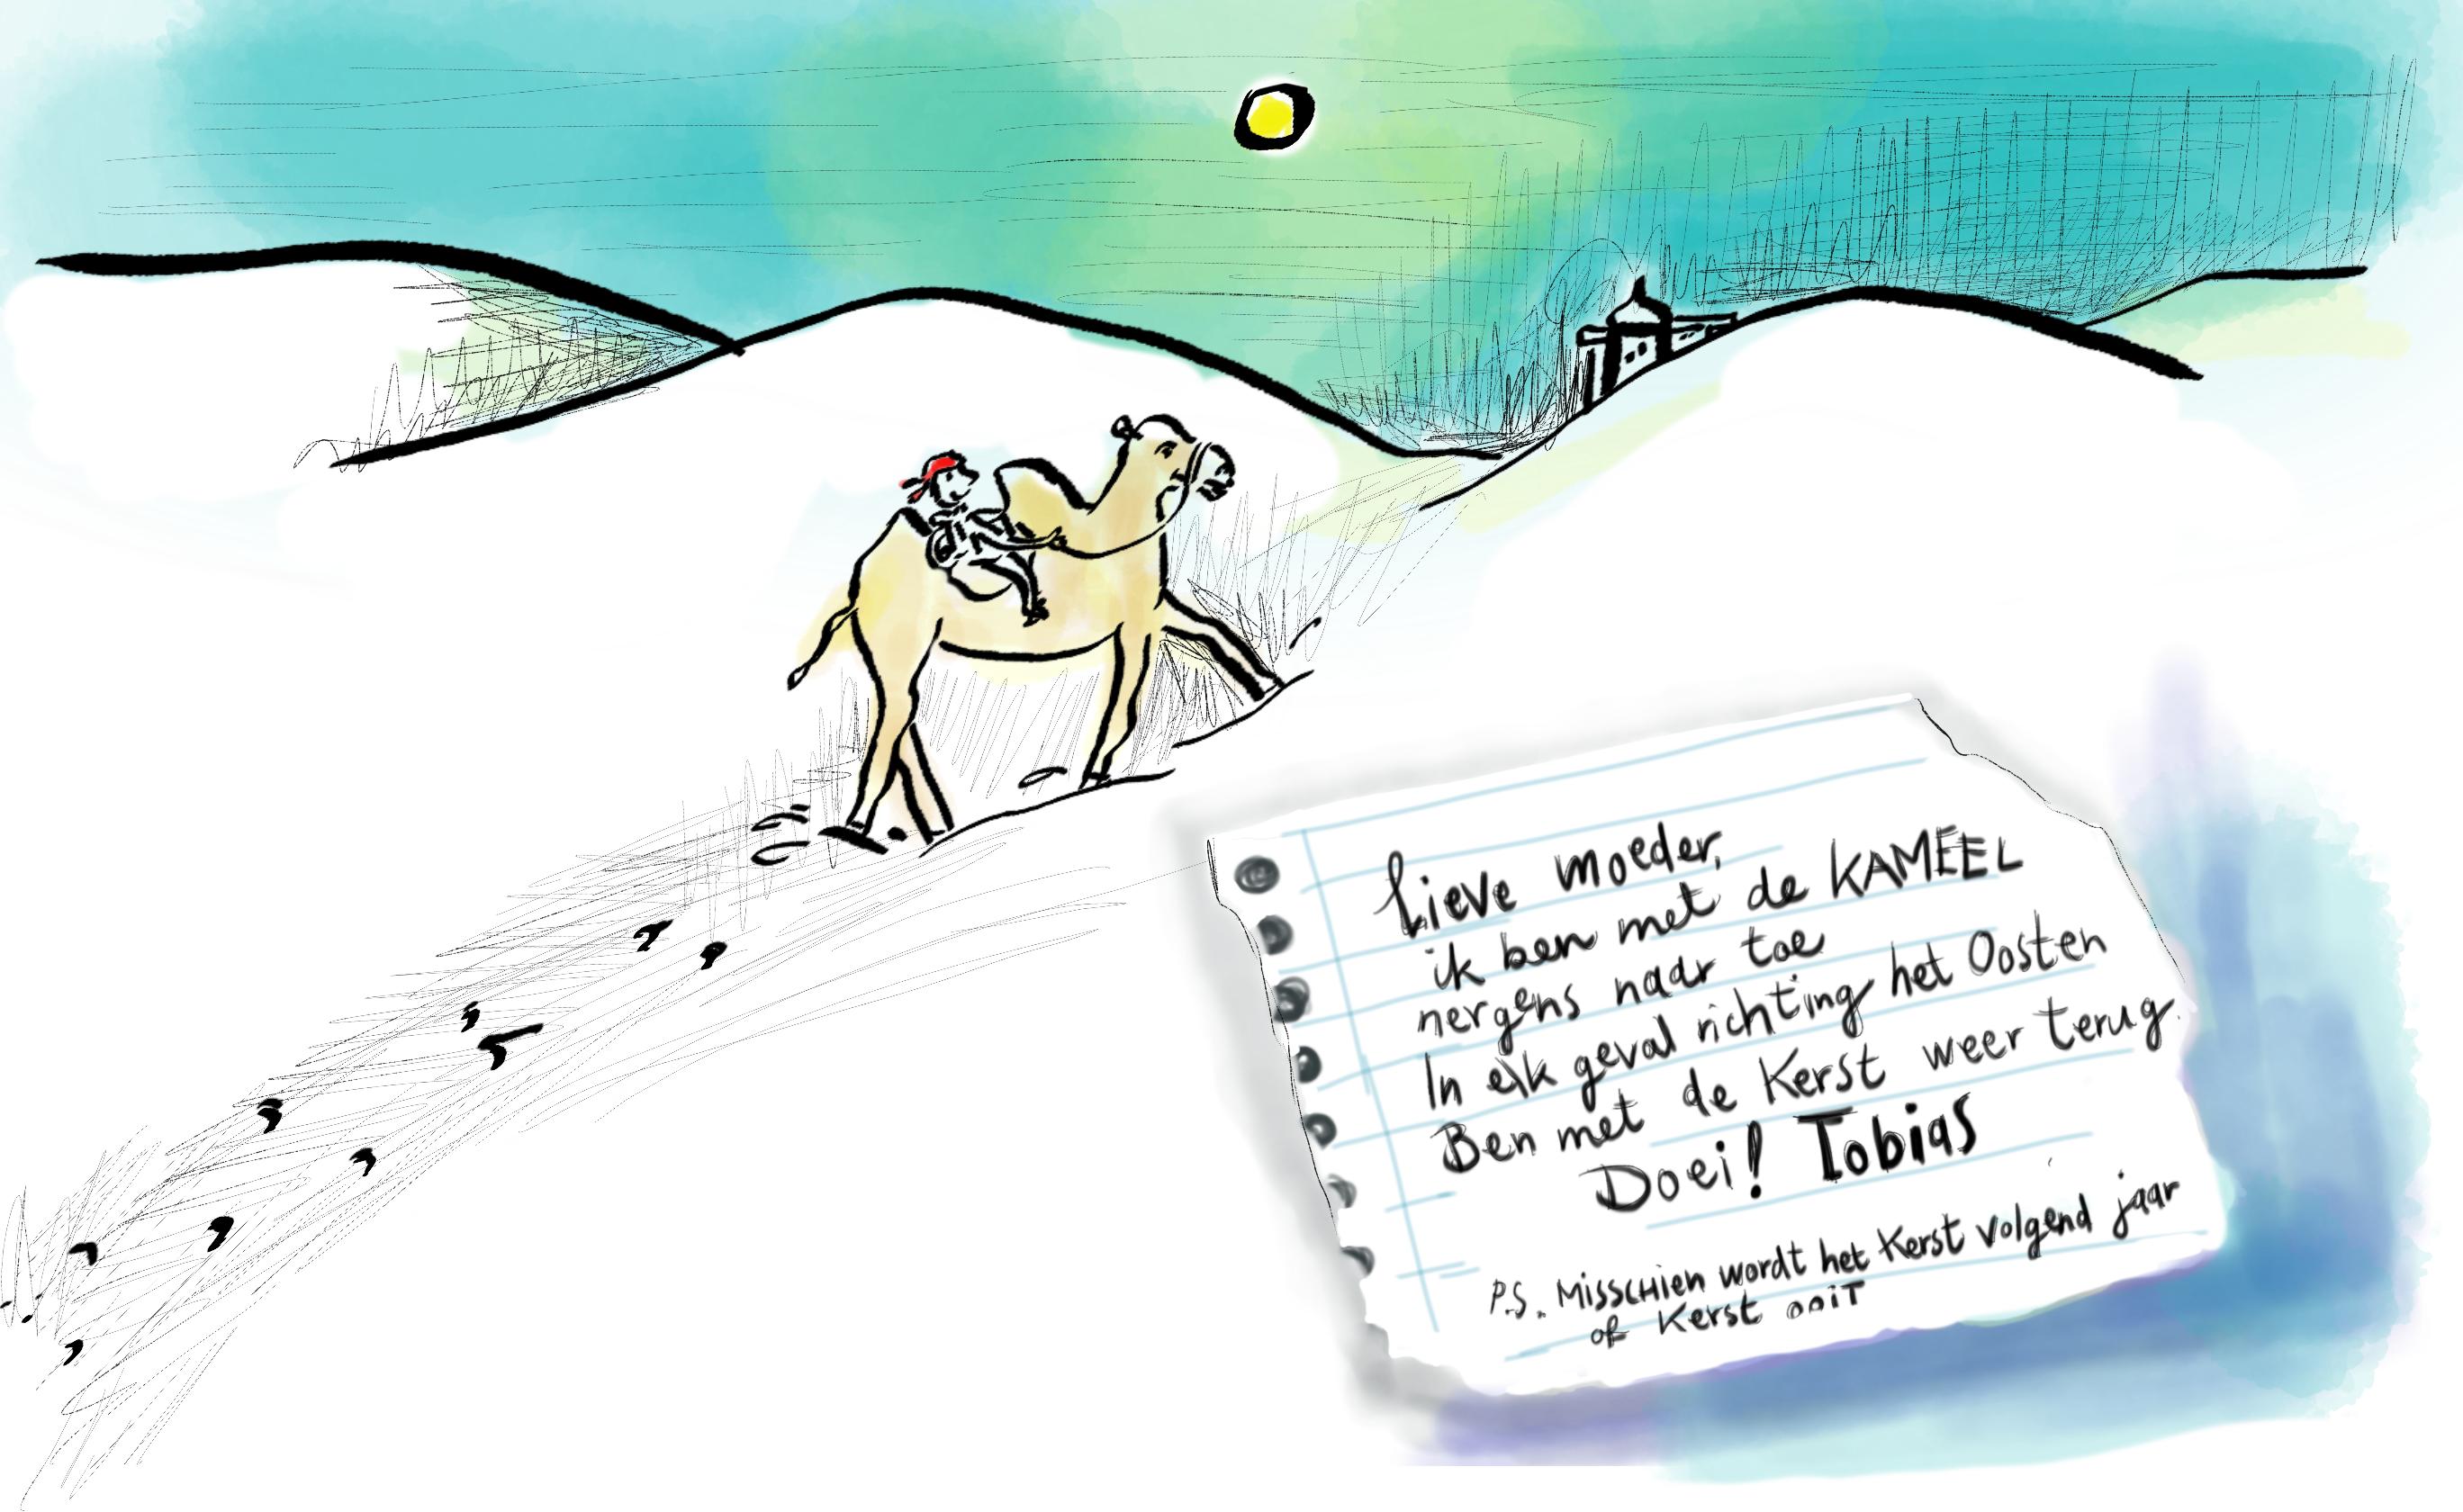 Lieve moeder,
ik ben met de KAMEEL
nergens naar toe
In elk geval richting het Oosten
Ben met de Kerst weer terug.
Doei! Tobias
P.S. Misschien wordt het Kerst volgend jaar
of Kerst ooit